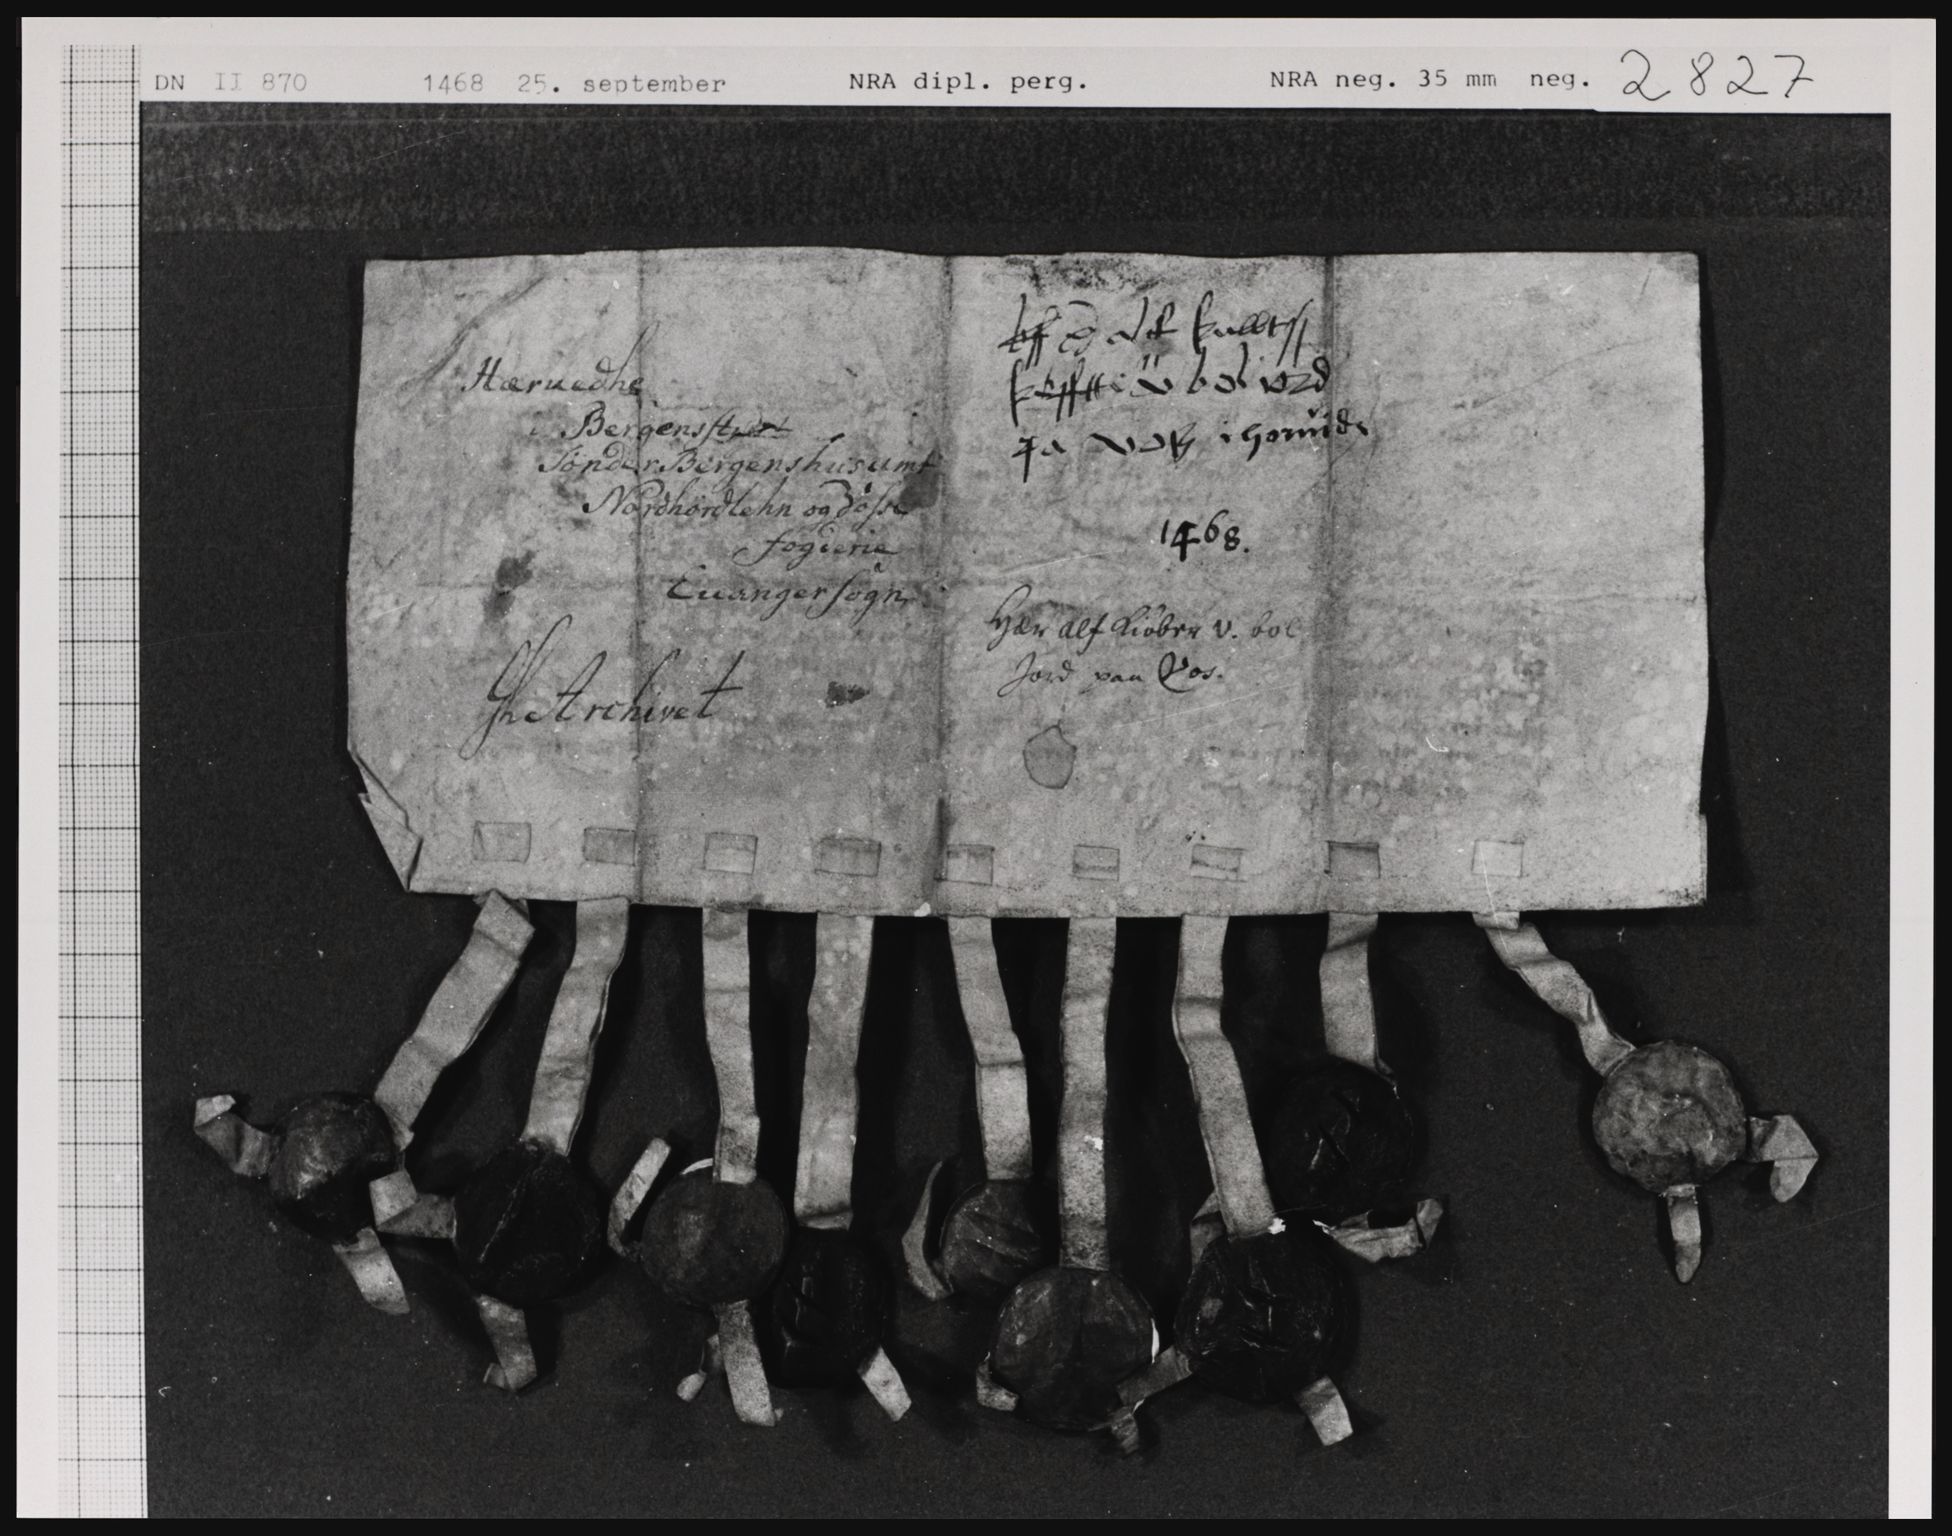 DN II 870 1468 25. september NRA dipl. perg. NRA neg. 35 mm neg. 2827
Hæruedhe
i Bergens stift
Sønder Bergenshus amt
Nordhordlehn og Vosse
fogderie
Euanger sogn
Archivet
her alf
v bol iord
pa vos i horuid
1468.
Hær alf kiøber v. bol
Jord paa Vos.